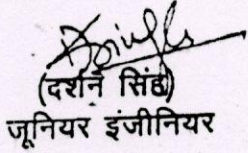 (दर्शन सिंह)
जूनियर इंजीनियर